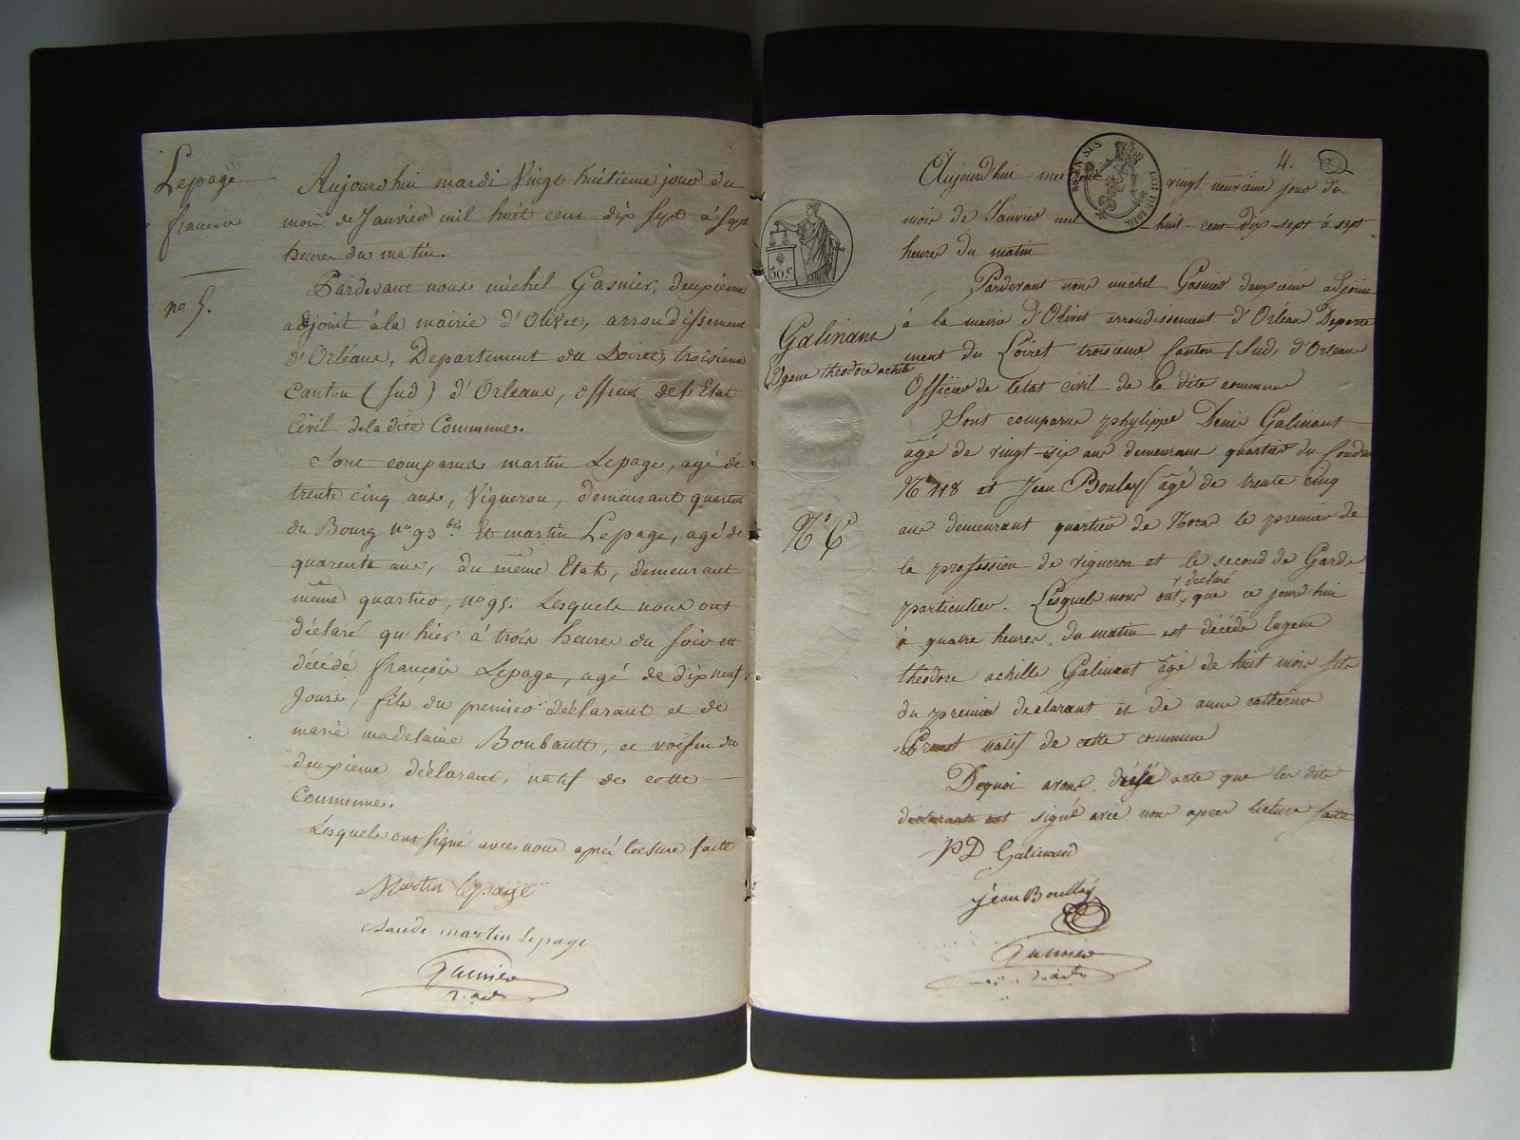 Lepage
francois
no 5.
Aujourdhui mardi Vingt huitieme jour du
mois de Janvier mil huit cent dix Sept à Sept
heures du matin.
Pardevant nous michel Gasnier, deuxieme
adjoint à la mairie d'Olivet, arrondissement
d'Orléans, Departement du Loiret, troisieme
Canton (Sud) d'Orleans, officier de l'Etat
Civil de la dite Commune.
Sont comparus martin Lepage, agé de
trente cinq ans, Vigneron, demeurant quartier
du Bourg no 93 bis. Et martin Lepage, agé de
quarente ans, du même Etat, demeurant
même quartier, no 95. Lesquels nous ont
déclaré qu'hier à trois heures du soir est
décédé francois Lepage, agé de dix neuf
jours, fils du premier déclarant et de
marie madelaine Boubault, et voisin du
deuxieme déclarant, natif de cette
Commune.
Lesquels ont signé avec nous après lecture faite
Martin lepage
Claude martin lepage
Gasnier
2. adj
4.
Aujourd'hui vingt neuvième jour du
mois de Janvier mil huit cent dix sept à sept
heures du matin
Pardevant nous michel Gasnier deuxieme adjoint
à la mairie d'Olivet arrondissement d'Orléans Departe
ment du Loiret troisieme Canton (Sud) d'Orleans
Officier de l'etat civil de la dite commune
30c
Galinant
Eugene theodore achille
No 6
Sont comparus phylippe Denis Galinant
âgé de vingt-six ans demeurant quartier du
No 418 et Jean Boulay âgé de trente cinq
ans demeurant quartier de le premier de
la profession de vigneron et le second de Garde
particulier. Lesquels nous ont déclaré que ce jourd'hui
à quatre heures du matin est décédé Eugene
théodore achille Galinant âgé de huit mois fils
du premier declarant et de anne catherine
natif de cette commune
Dequoi avons dréssé acte que les dits
declarants ont signé avec nous apres lecture faite
PD Galinand
Jean Boullay
Gasnier